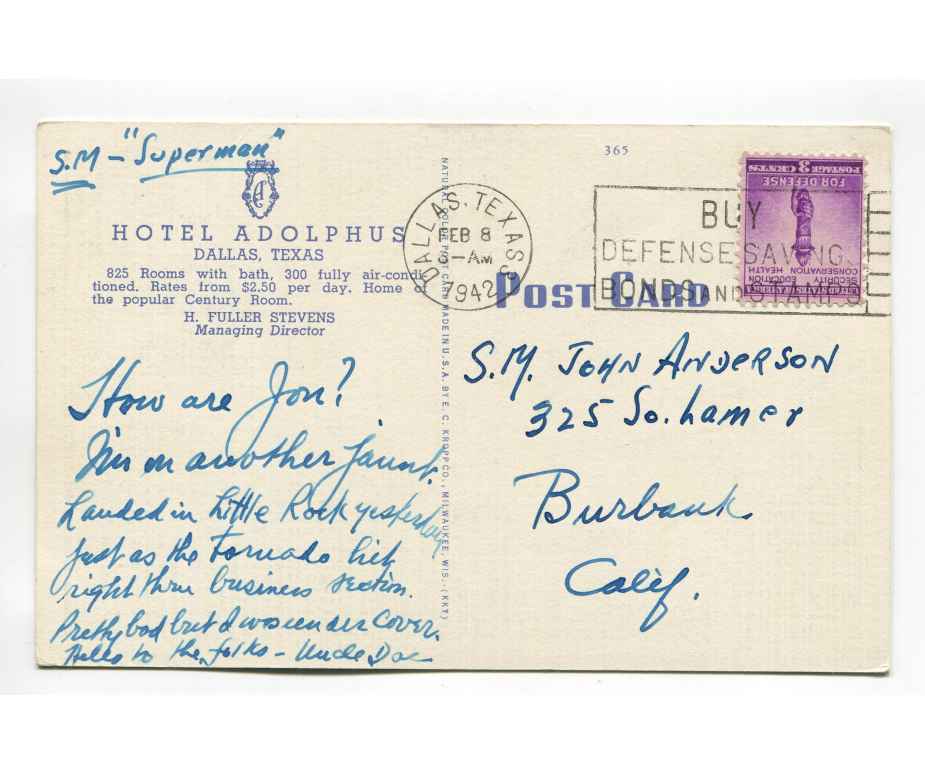 S.M - "Superman"
HOTEL ADOLPHUS
DALLAS, TEXAS
825 Rooms with bath, 300 fully air-condi-
tioned. Rates from $2.50 per day. Home of
the popular Century Room.
H. FULLER STEVENS
Managing Director
How are You?
I'm on another jaunt.
Landed in Little Rock yesterday
just as the Tornado hit
right thru business section.
Pretty bad but I was under cover.
Hello to the folks - Uncle Doc
NATURAL COLOR POST CARD MADE IN U.S.A. BY E. C. KROPP CO., MILWAUKEE, WIS. (KKT)
365
DALLAS, TEXAS
FEB 8
5-AM
1942
BUY
DEFENSE SAVING
BONDS AND STAMPS
UNITED STATES OF AMERICA
SECURITY EDUCATION
CONSERVATION HEALTH
FOR DEFENSE
POSTAGE 3 CENTS
POST CARD
S.M. JOHN ANDERSON
325 So. Lamer
Burbank
Calif.